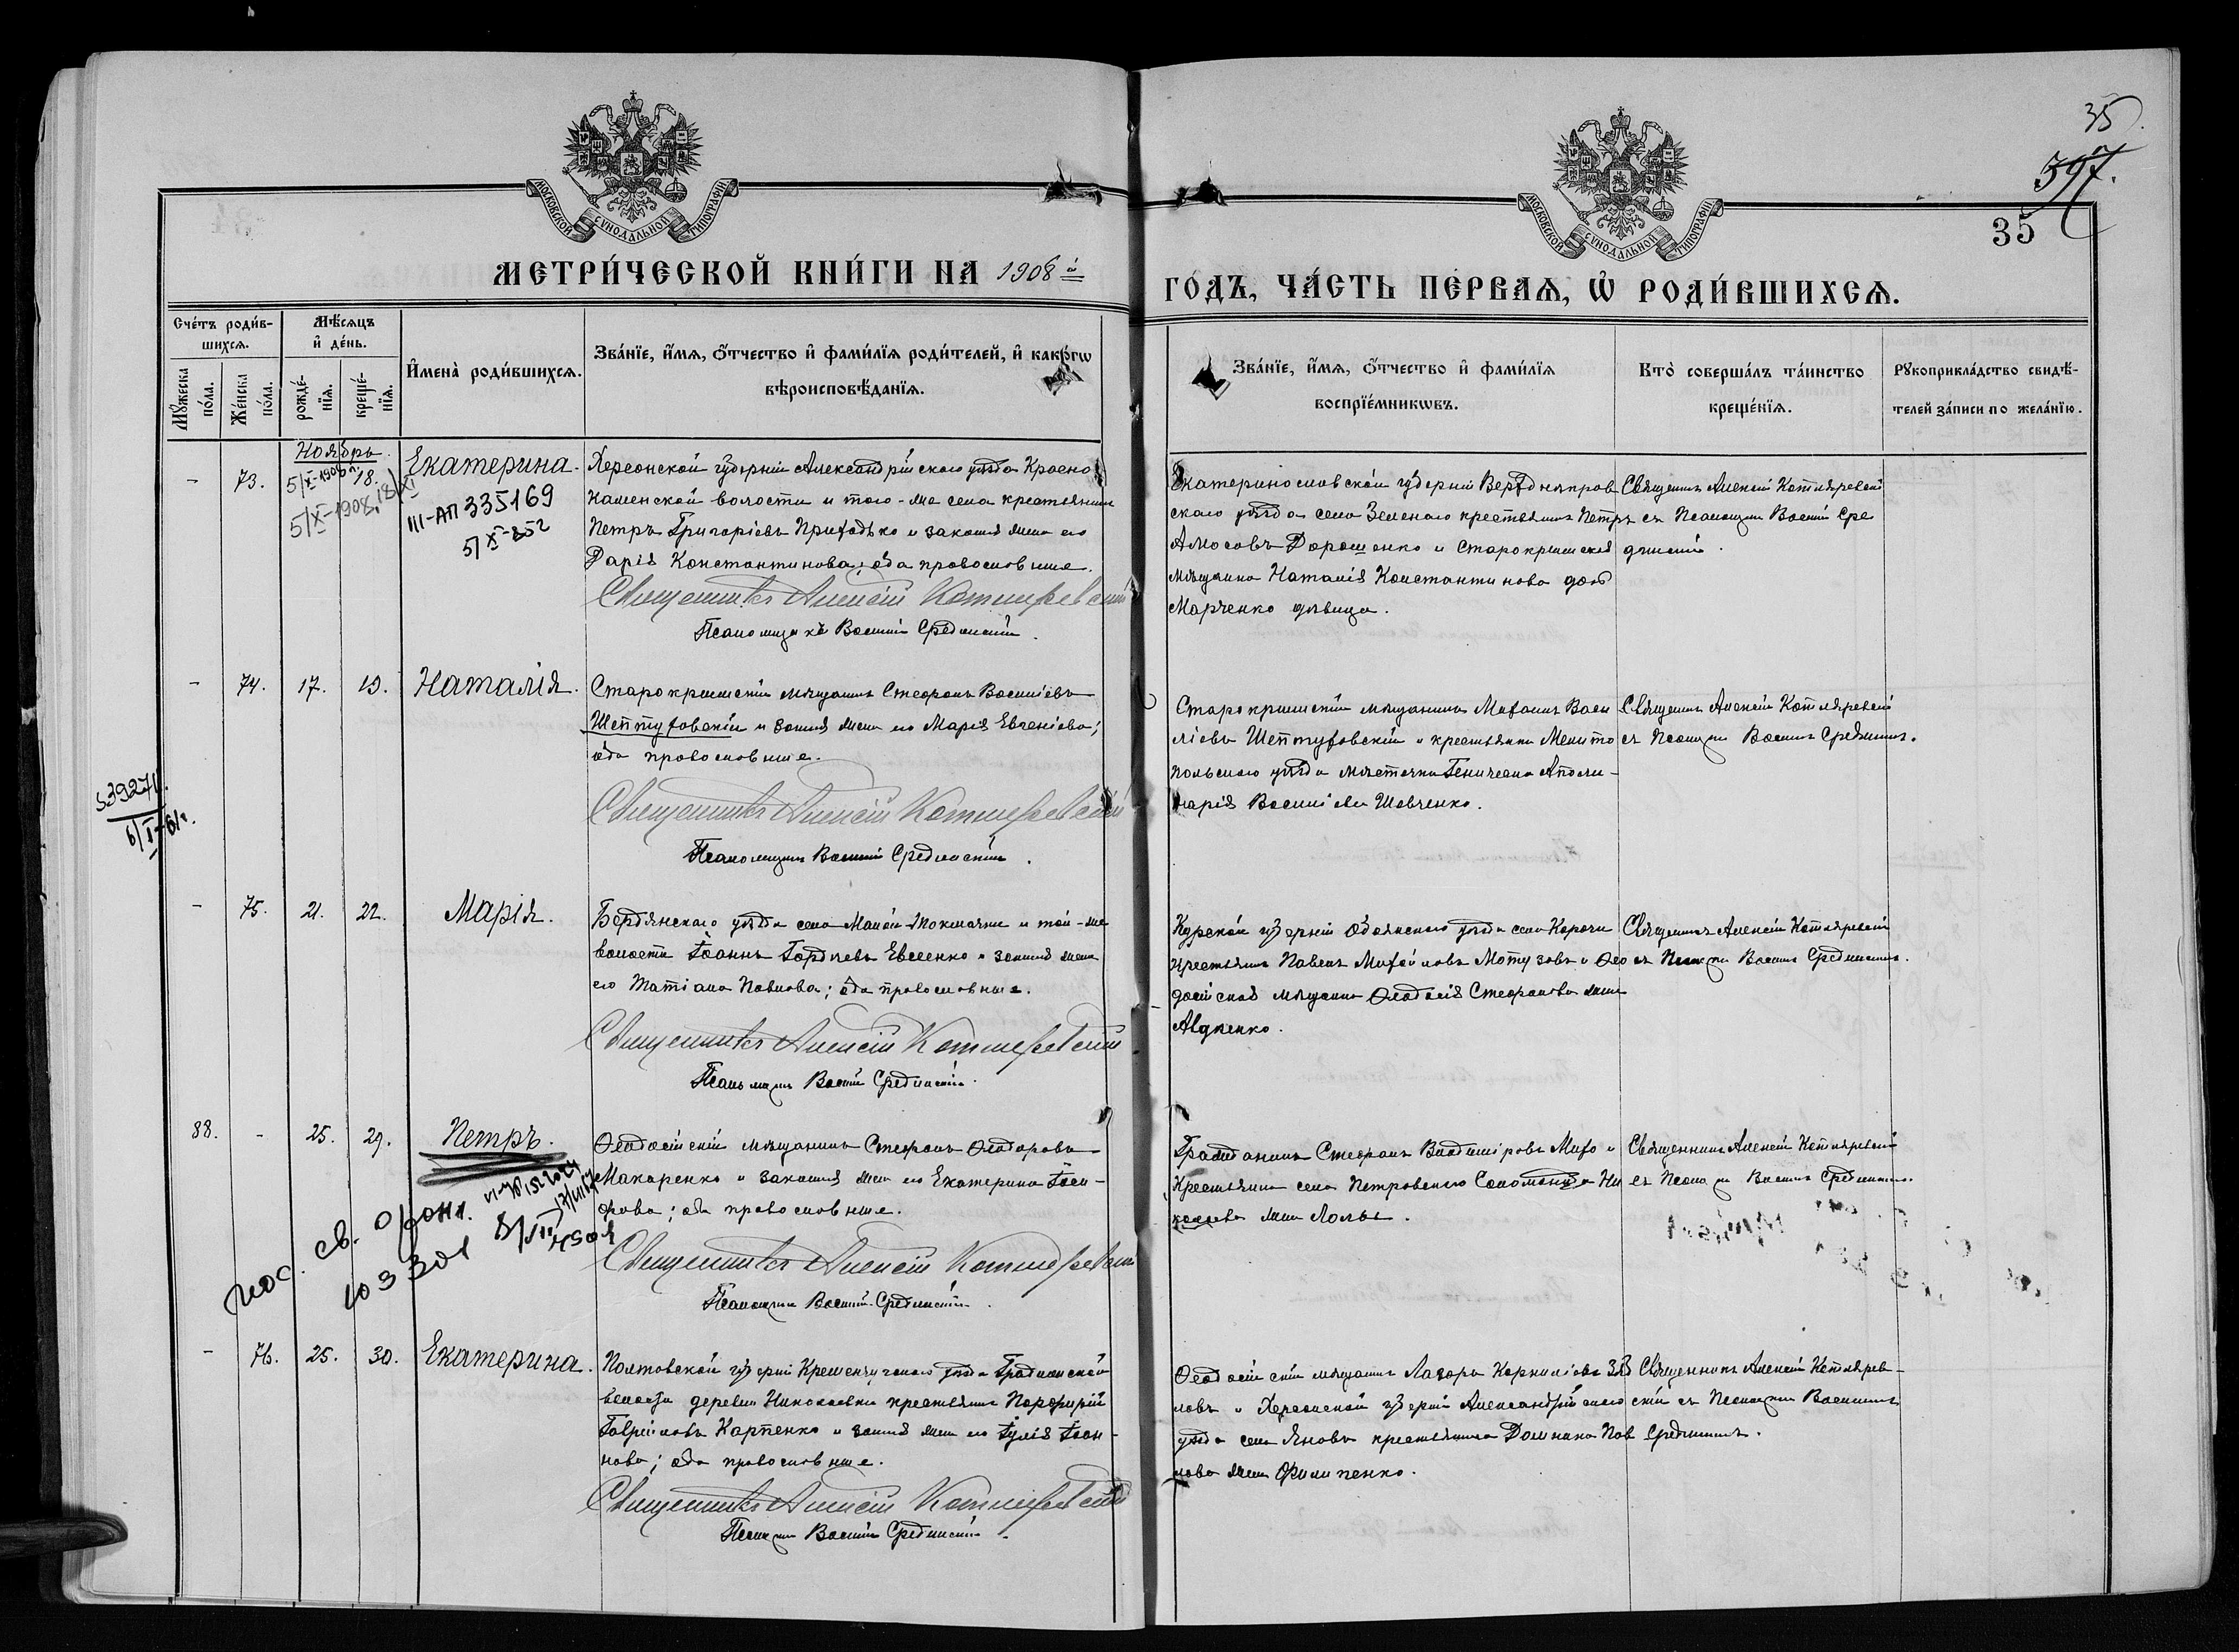 35.
397.
35
МОСКОВСКОЙ СѴНОДАЛЬНОЙ ТИПОГРАФІИ
МОСКОВСКОЙ СѴНОДАЛЬНОЙ ТИПОГРАФІИ
МЕТРИ́ЧЕСКОЙ КНИ́ГИ НА 1908й
ГО́ДЪ, ЧА́СТЬ ПЕ́РВАѦ, Ѡ҆ РОДИ́ВШИХСѦ.
Сче́тъ роди́в-
шихсѧ.
Мꙋ́жеска
по́ла.
Же́нска
по́ла.
Мѣ́сѧцъ
и҆ де́нь.
рожде́-
нїѧ.
креще́-
нїѧ.
И҆мена̀ роди́вшихсѧ.
Зва́нїе, и҆́мѧ, ѻ҆́тчество и҆ фами́лїѧ роди́телей, и҆ како́гѡ
вѣроисповѣ́данїѧ.
Зва́нїе, и҆́мѧ, ѻ҆́тчество и҆ фами́лїѧ
воспрїе́мникѡвъ.
Кто̀ соверша́лъ та́инство
креще́нїѧ.
Рꙋкоприкла́дство свидѣ́-
телей за́писи по жела́нїю.
Ноябрь
- 73. 5/XI-1908 г. 18. Екатерина.
5/XI-1908, 18/XI
III-АП 335169
5/X-52
Херсонской губерніи Александрійскаго уѣзда Красно
каменской волости и того-же села крестьянинъ
Петръ Григорьевъ Приходько и законная жена его
Дарія Константинова; оба православные.
Священникъ Алексій Котляревскій
Псаломщикъ Василій Срединскій.
Екатеринославской губерніи Верхнеднѣпров
скаго уѣзда села Зеленаго крестьянинъ Петръ
Амосовъ Дорошенко и Старокрымская
мѣщанка Наталія Константинова дочь
Марченко дѣвица.
Священникъ Алексій Котляревскій
съ Псаломщ. Василій Сре
динскій.
- 74. 17. 19. Наталія.
Старокрымскій мѣщанинъ Стефанъ Васильевъ
Шептуховскій и законная жена его Марія Евгеніева;
оба православные.
Священникъ Алексій Котляревскій
Псаломщикъ Василій Срединскій.
Старокрымскій мѣщанинъ Михаилъ Васи
ліевъ Шептуховскій и крестьянка Мелито
польскаго уѣзда мѣстечка Геническа Аполи-
нарія Васильева Шевченко.
Священникъ Алексій Котляревскій
съ Псаломщ. Василіемъ Срединскимъ.
539271
6/I-61г.
- 75. 21. 22. Марія.
Бердянскаго уѣзда села Малой Токмачки и той-же
волости Іоаннъ Гордѣевъ Евсеенко и законная жена
его Татіана Павлова; оба православные.
Священникъ Алексій Котляревскій
Псаломщикъ Василій Срединскій.
Курской губерніи Обоянскаго уѣзда села Корочи
крестьянинъ Павелъ Михайловъ Мотузовъ и Ѳео
досійская мѣщанка Ѳеодосія Стефанова жена
Авдѣенко.
Священникъ Алексій Котляревскій
съ Псаломщ. Василіемъ Срединскимъ.
88. - 25. 29. Петръ.
Ѳеодосійскій мѣщанинъ Стефанъ Ѳеодоровъ
Макаренко и законная жена его Екатерина Іоси-
фова; оба православные.
Священникъ Алексій Котляревскій
Псаломщикъ Василій Срединскій.
Гражданинъ Стефанъ Владиміровъ Михо и
Крестьянка села Петровскаго Соломонида Ни
колаева жена Лольве.
Священникъ Алексій Котляревскій
съ Псаломщ. Василіемъ Срединскимъ.
- 76. 25. 30. Екатерина.
Полтавской губерніи Кременчугскаго уѣзда Градижской
волости деревни Николаевки крестьянинъ Порфирій
Гавріиловъ Карпенко и законная жена его Іулія Іоан-
нова; оба православные.
Священникъ Алексій Котляревскій
Псаломщикъ Василій Срединскій.
Ѳеодосійскій мѣщанинъ Лазарь Корниліевъ
и Херсонской губерніи Александрійскаго
уѣзда села Янова крестьянка Домника Пав
лова жена Филипенко.
Священникъ Алексій Котлярев-
скій съ Псаломщ. Василіемъ
Срединскимъ.